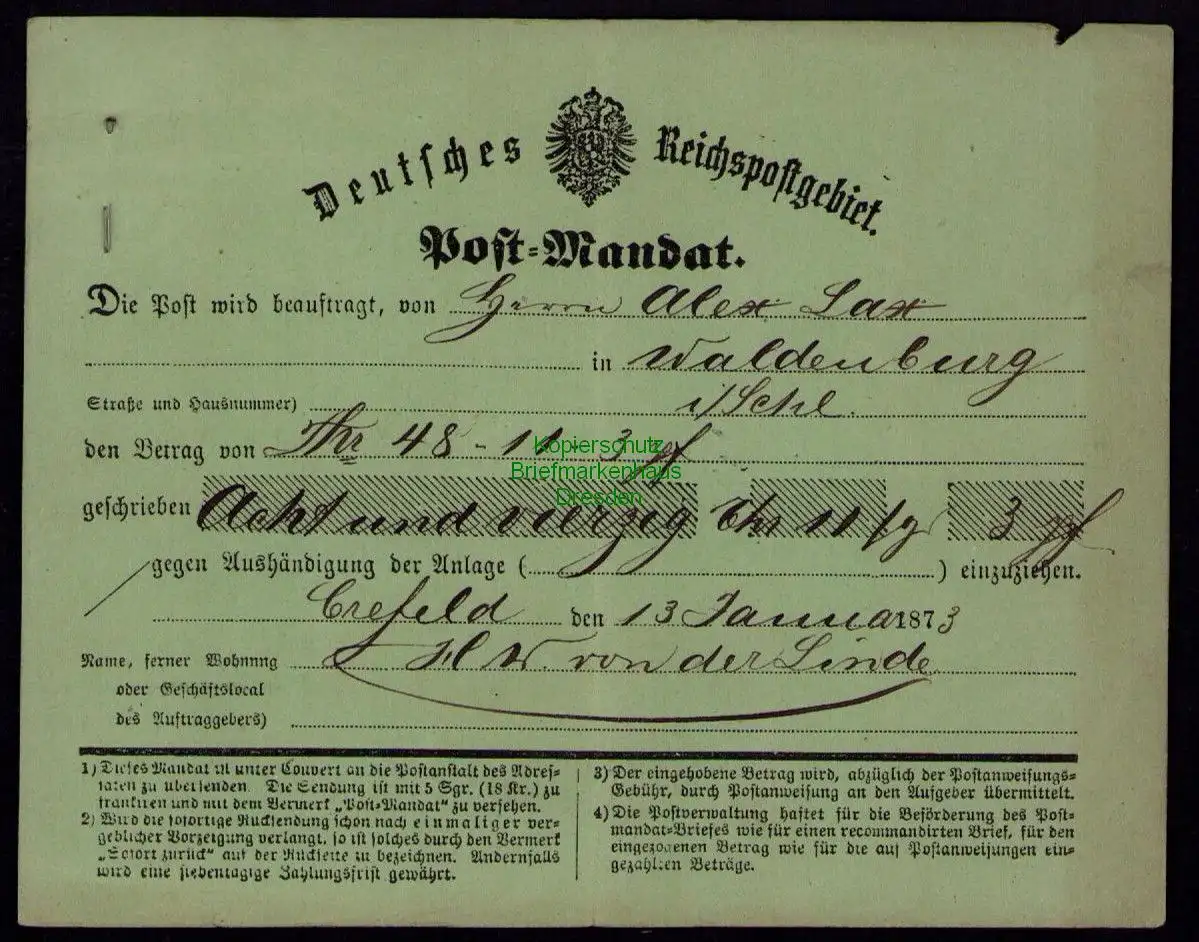 Deutsches Reichspostgebiet.
Post-Mandat.
Die Post wird beauftragt, von Herrn Alex Lax
in Waldenburg
Straße und Hausnummer) i/Schl.
den Betrag von Thr 48 - 11 3 pf
Kopierschutz
Briefmarkenhaus
Dresden
geschrieben Acht und vierzig Thr 11 sg 3 pf
gegen Aushändigung der Anlage ( ) einzuziehen.
Crefeld den 13 Januar 1873
Name, ferner Wohnung H W. von der Linde
oder Geschäftslocal
des Auftraggebers)
1) Dieses Mandat ist unter Couvert an die Postanstalt des Adres-
saten zu übersenden. Die Sendung ist mit 5 Sgr. (18 Kr.) zu
frankiren und mit dem Vermerk „Post-Mandat" zu versehen.
2) Wird die sofortige Rücksendung schon nach einmaliger ver-
geblicher Vorzeigung verlangt, so ist solches durch den Vermerk
„Sofort zurück" auf der Rückseite zu bezeichnen. Andernfalls
wird eine siebentägige Zahlungsfrist gewährt.
3) Der eingehobene Betrag wird, abzüglich der Postanweisungs-
Gebühr, durch Postanweisung an den Aufgeber übermittelt.
4) Die Postverwaltung haftet für die Beförderung des Post-
mandat-Briefes wie für einen recommandirten Brief, für den
eingezogenen Betrag wie für die auf Postanweisungen ein-
gezahlten Beträge.